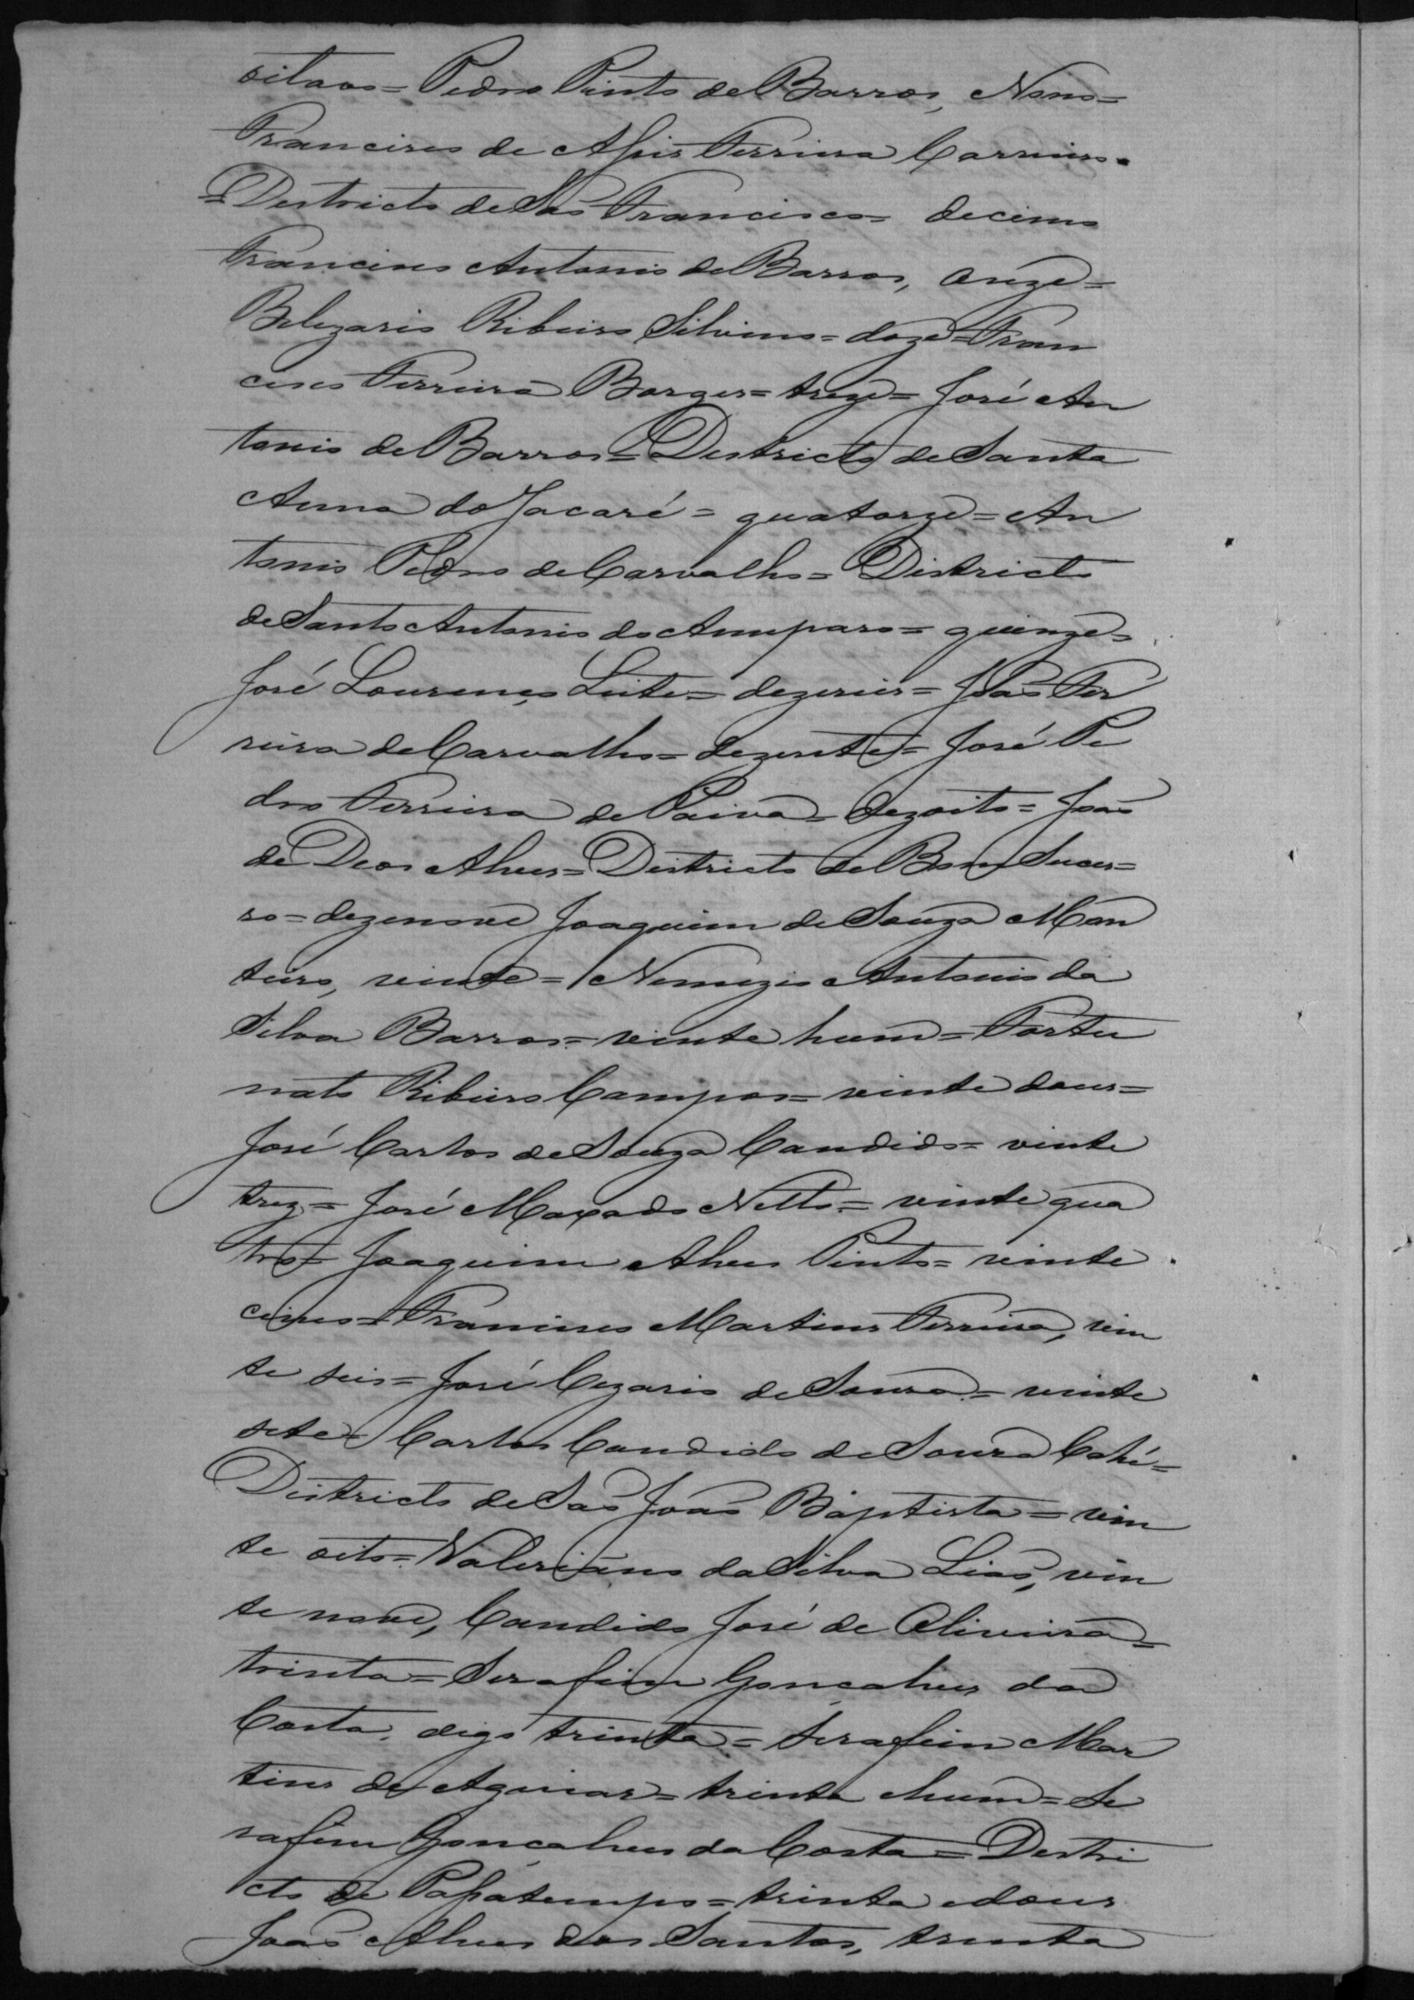 oitavo = Pedro Pinto de Barros, Nono =
Francisco de Assis Ferreira Carneiro.
= Destricto de São Francisco = decimo
Francisco Antonio de Barros, onze =
Belizario Ribeiro Silvino = doze = Fran
cisco Ferreira Borges = treze = José An
tonio de Barros = Destricto de Santa
Anna do Jacaré = quatorze = An
tonio Pedro de Carvalho = Districto
de Santo Antonio do Amparo = quinze =
José Lourenço Leite = dezeseis = João Fer
reira de Carvalho = dezesete = José Pe
dro Ferreira de Paiva = dezoito = João
de Deos Alves = Districto de Bom Suces=
so = dezenove Joaquim de Souza Mon
teiro, veinte = Nemezio Antonio da
Silva Barros = veinte hum = Fortu
nato Ribeiro Campos = veinte dous =
José Carlos de Souza Candido = vinte
trez = José Maxado Netto = veinte qua
tro = Joaquim Alves Pinto = veinte
cinco = Francisco Martins Ferreira, vein
te seis = José Cezario de Souza = veinte
sete = Carlos Candido de Souza =
Destricto de São João Baptista = vein
te oito = Valeriano da Silva Lião, vein
te nove, Candido José de Oliveira =
trinta = Serafim Gonçalves da
Costa, digo trinta = Serafim Mar
tins de Aguiar = trinta e hum = Se
rafim Gonçalves da Costa = Destri
cto de Passatempo = trinta e dous
João Alves dos Santos, trinta